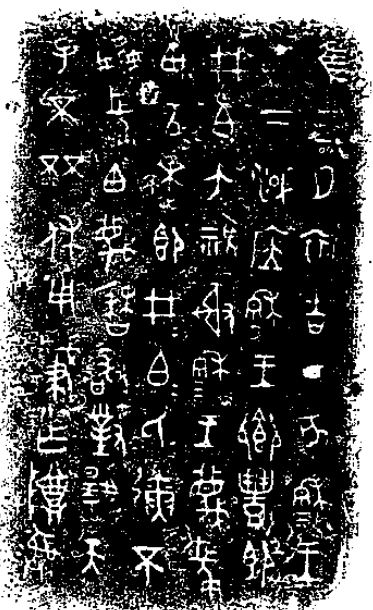 隹三月初吉丁亥穆王
才下淢㡴穆王鄉豊即
井白大祝射穆王蔑長
甶以逨即井白氏不
長甶蔑歷敢對揚天
子不㔻休用肇乍尊彝